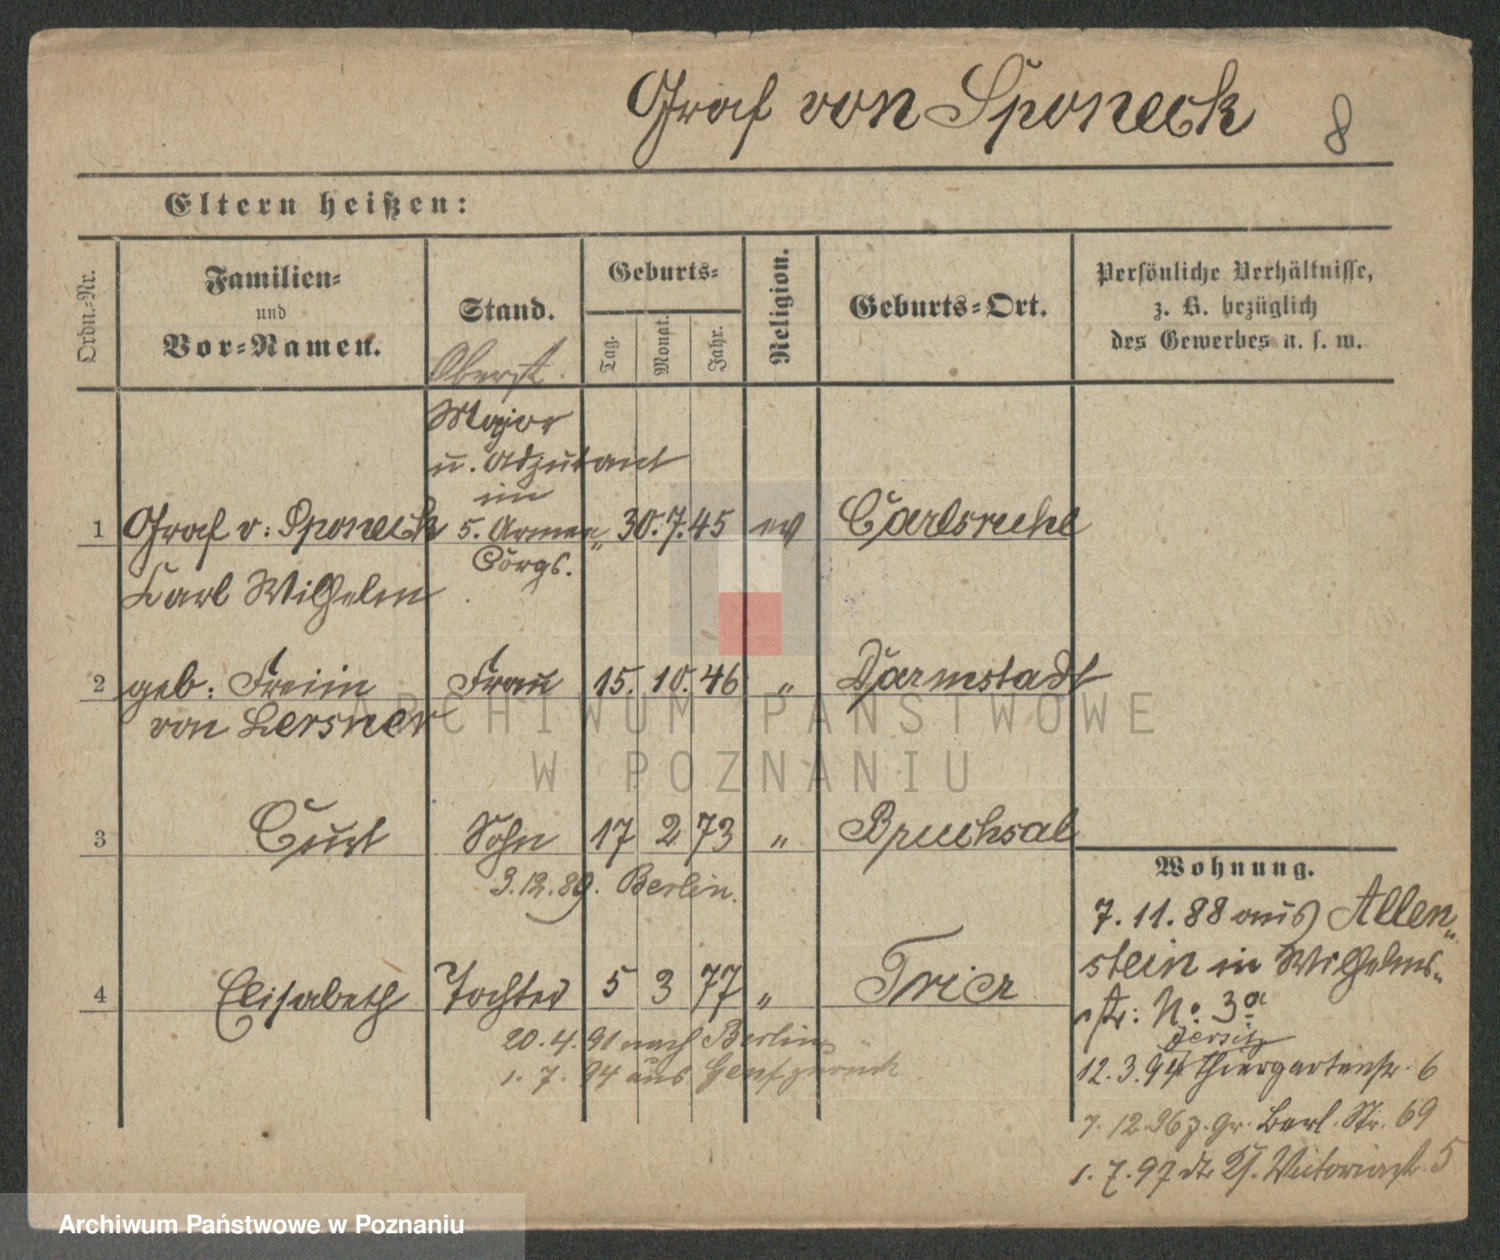 Graf von Sponeck 8
Eltern heißen:
Ordn.-Nr.
Familien-
und
Vor-Namen.
Stand.
Oberst
Geburts-
Tag.
Monat.
Jahr.
Religion.
Geburts-Ort.
Persönliche Verhältnisse,
z. B. bezüglich
des Gewerbes u. s. w.
Major
u. Adjutant
im
1 Graf v: Sponeck 5. Armee„ 30. 7. 45 ev Carlsruhe
Corps.
Karl Wilhelm
2 geb: Freiin Frau 15. 10. 46 „ Darmstadt
von Lersner
3 Curt Sohn 17 2 73 „ Bruchsal
3.12.89. Berlin.
4 Elisabeth Tochter 5 3 77 „ Trier
20.4.91 nach Berlin
1.7.94 aus Genf zurück
Wohnung.
7.11.88 aus Allen„
stein in Wilhelms„
str: No. 3a
Jersitz
12.3.94 Thiergartenstr. 6
7.12.96 z. Gr. Berl. Str. 69
1.7.97 Victoriastr. 5
ARCHIWUM PAŃSTWOWE
W POZNANIU
Archiwum Państwowe w Poznaniu